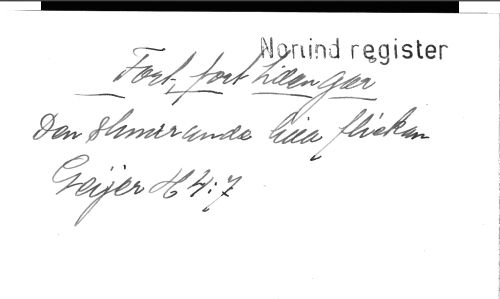 Norlind register
Fort, fort tiden går
Den slumrande lilla flickan
Geijer H 4:7